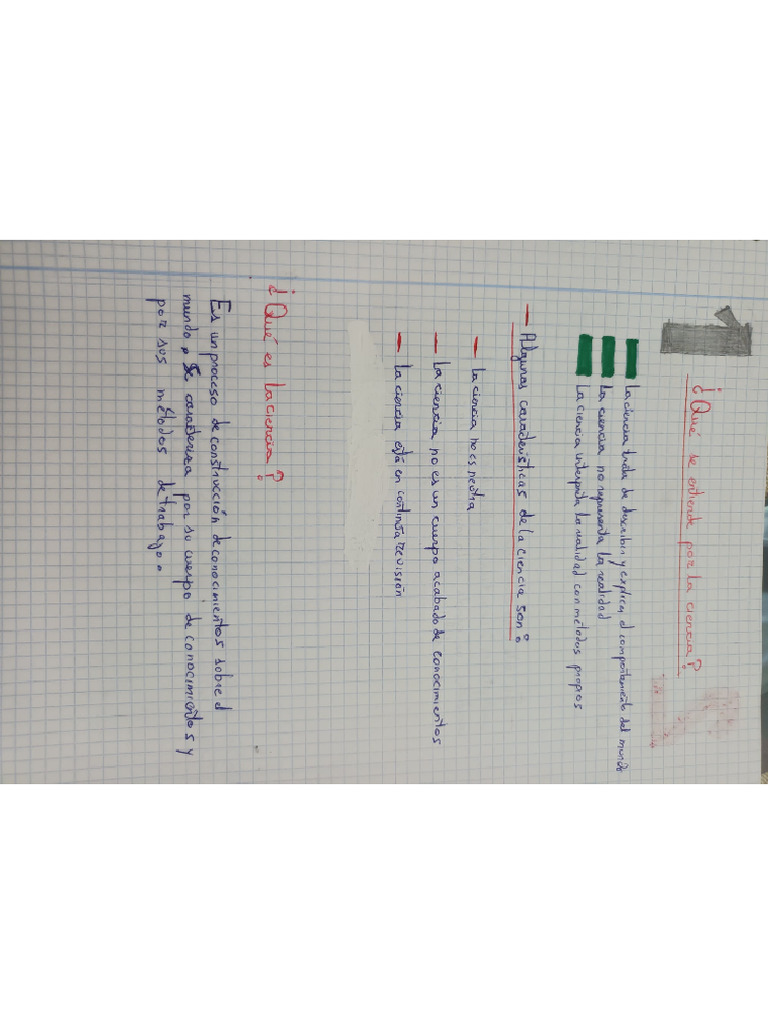 1
¿Qué se entiende por la ciencia?
La ciencia trata de describir y explicar el comportamiento del mundo
La ciencia no representa la realidad
La ciencia interpreta la realidad con métodos propios
— Algunas características de la ciencia son:
— La ciencia no es neutra
— La ciencia no es un cuerpo acabado de conocimientos
— La ciencia está en continua revisión
¿Qué es la ciencia?
Es un proceso de construcción de conocimientos sobre el
mundo, se caracteriza por su cuerpo de conocimientos y
por sus métodos de trabajo.